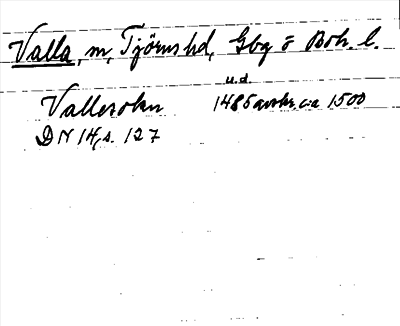 Valla, m, Tjörns hd, Gbg o Boh. l.
u.d.
Vallesokn 1485 avskr. ca 1500
DN 14, s. 127